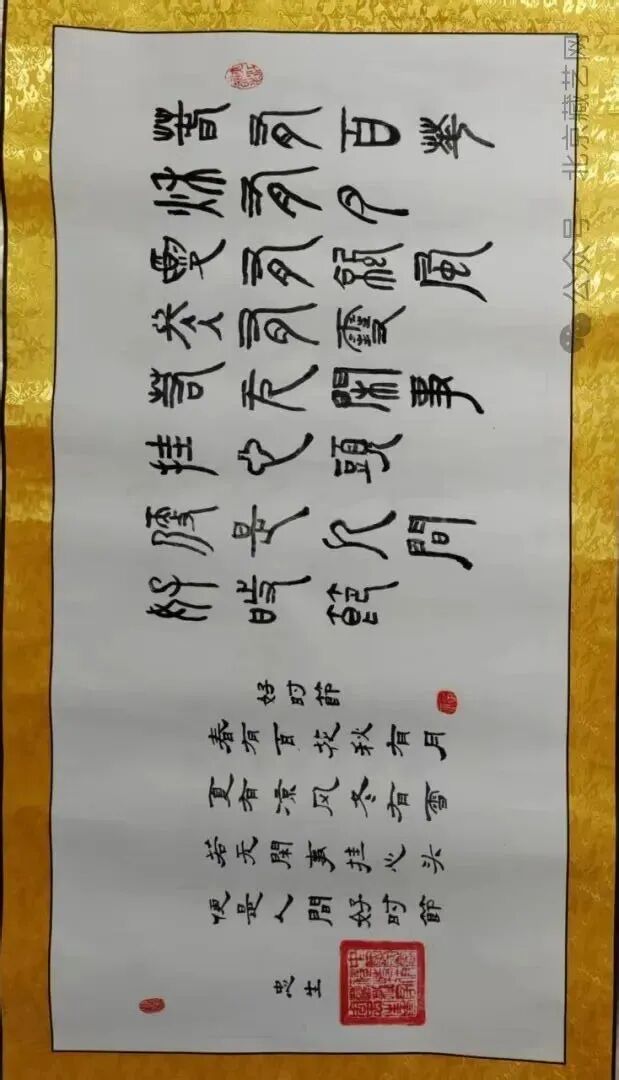 春有百華
秋有月
夏有涼風
冬有雪
若无閑事
挂心頭
便是人間
好時節
好时節
春有百花秋有月
夏有凉风冬有雪
若无閑事挂心头
便是人間好时節
忠生
公众号 · 北京藏艺网